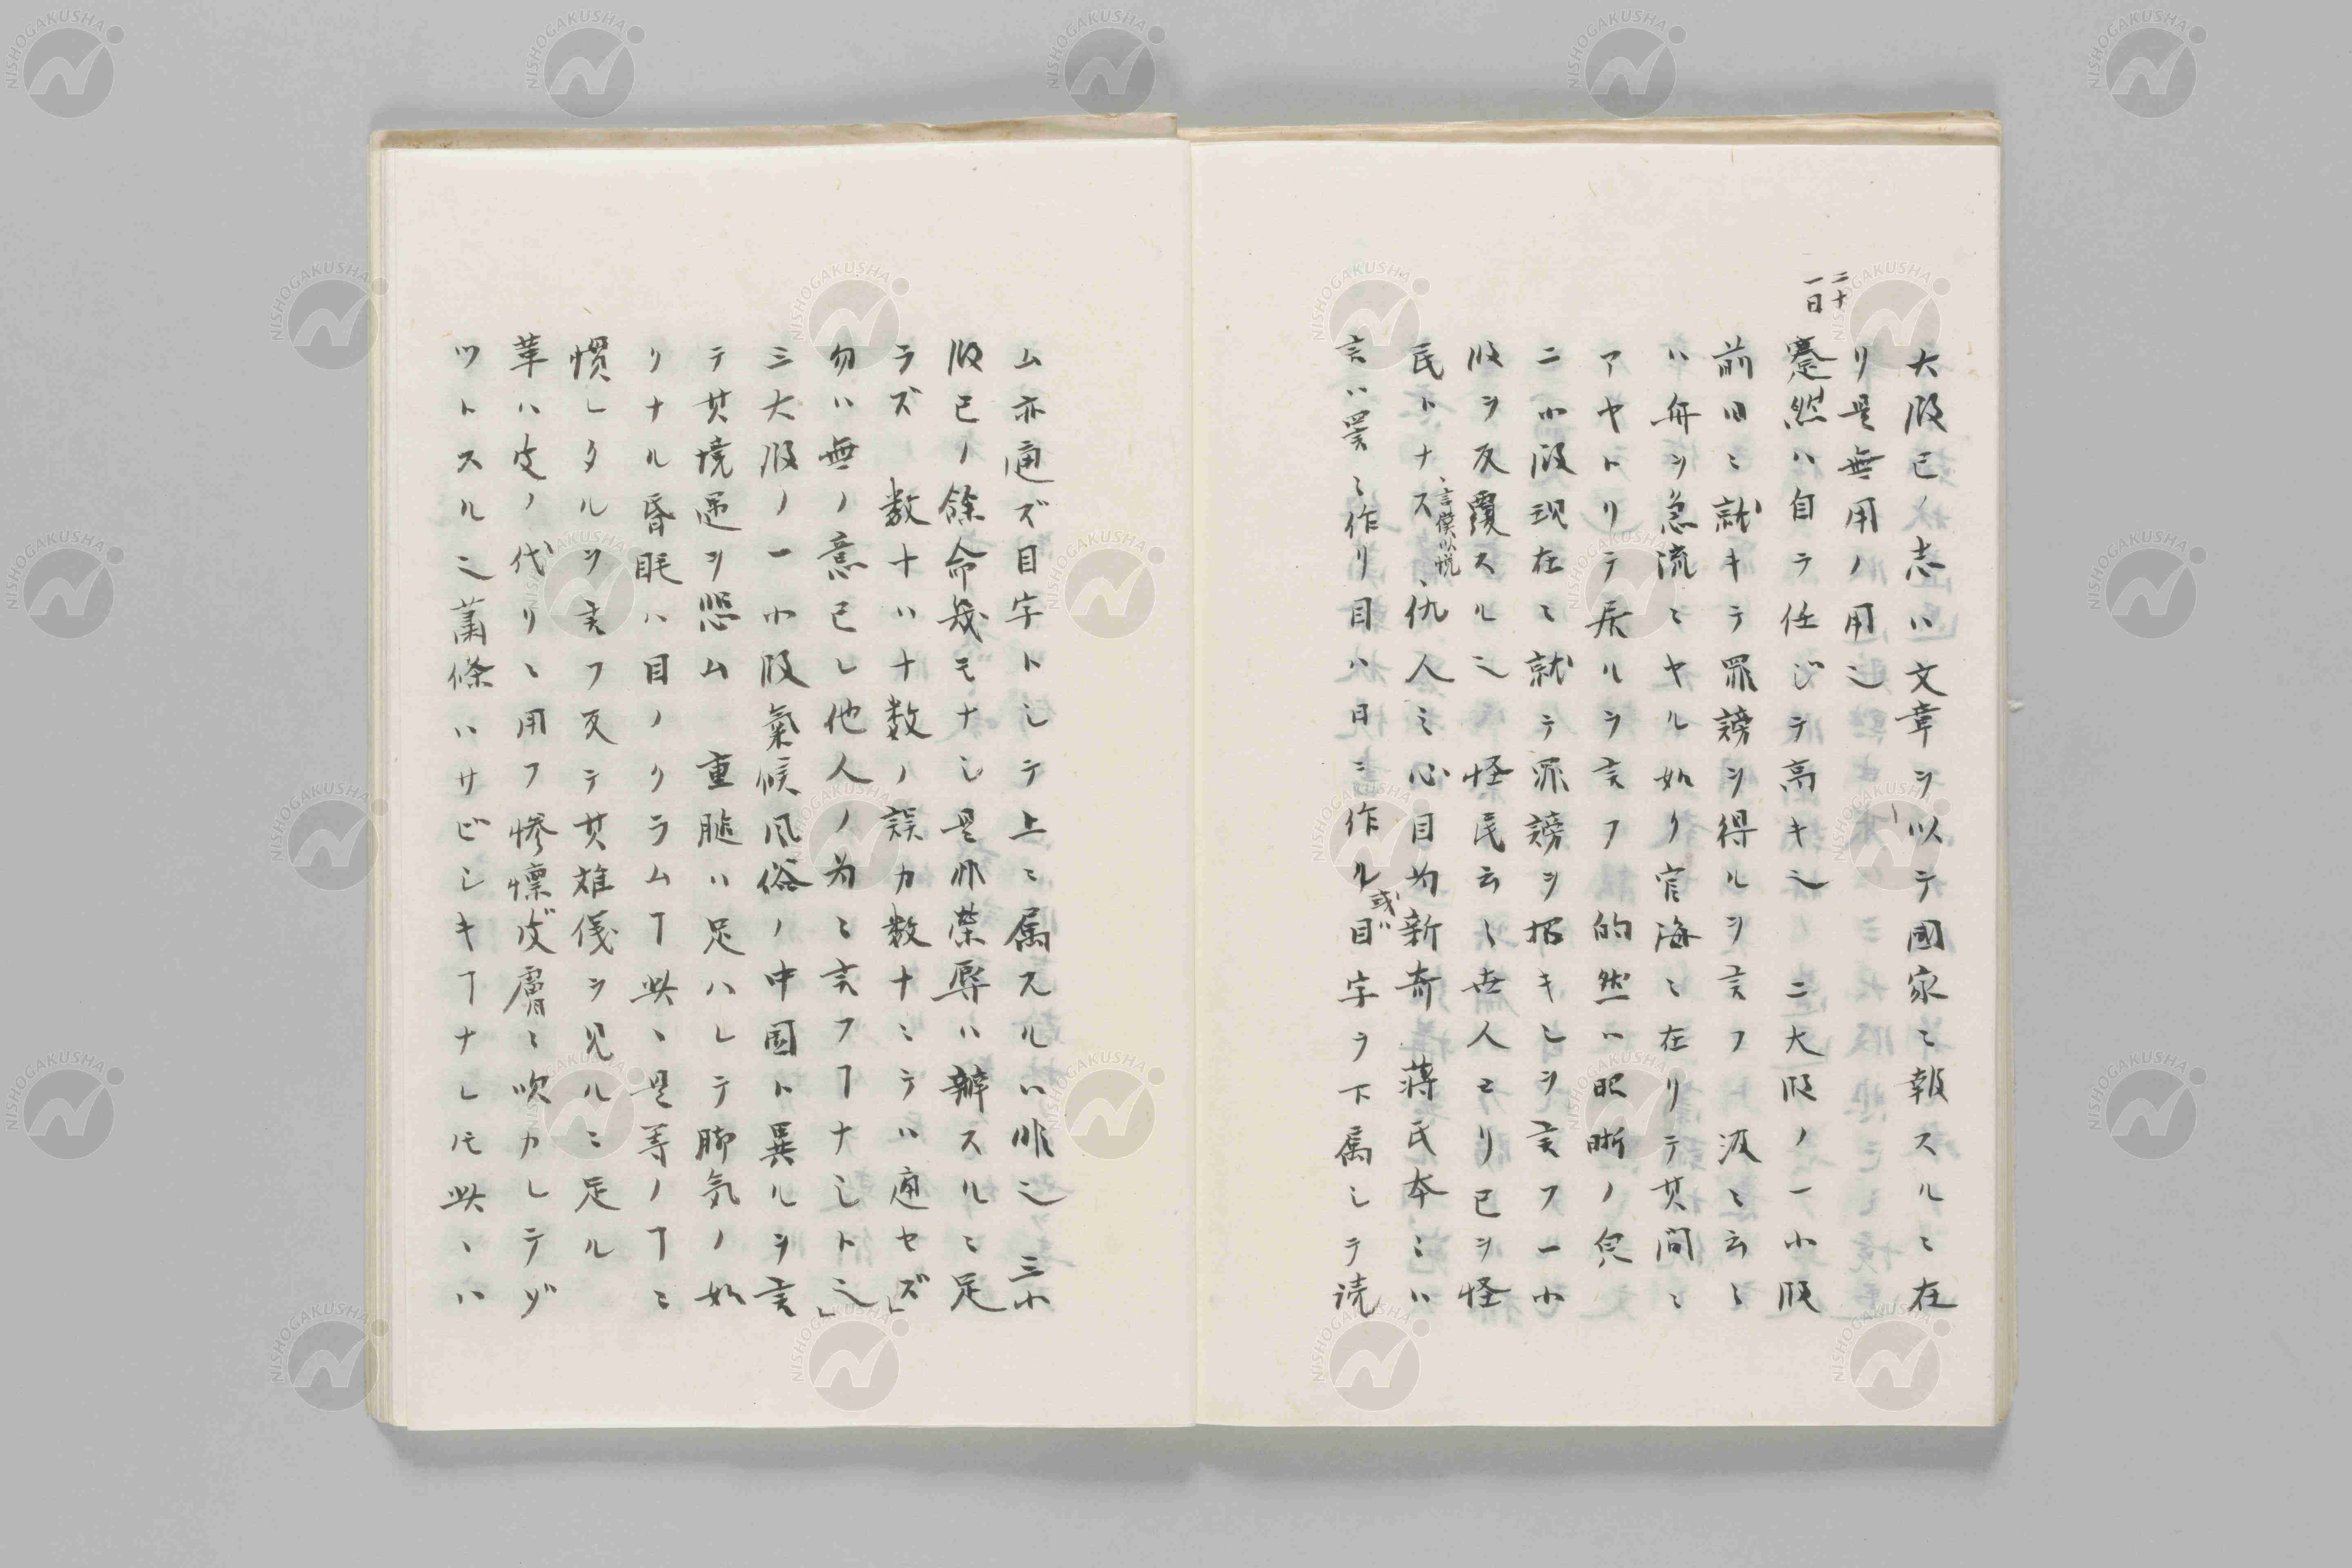 大段已ノ志ハ文章ヲ以テ國家ニ報スルニ在
リ是無用ノ用也
二十一日
蹇然ハ自ラ任ジテ高キ也 二大段ノ一小段
前日ニ就キテ罪謗ヲ得ルヲ言フト 汲ニ云々
ハ舟ヲ急流ニヤル如ク官海ニ在リテ其間ニ
アヤトリテ居ルヲ言フ 的然ハ昭晰ノ皃
二小段現在ニ就テ罪謗ヲ招キシヲ言フ一小
段ヲ反覆スル也 怪民云々世人ヨリ已ヲ怪
民トナス、仇人ミ心目為新奇 蒋氏本ニハ
言ハ詈ニ作リ目ハ日ニ作ル目字ヲ下属シテ読
或ハ
ム亦通ズ目字トシテ上ニ属スルハ非也 三小
段已ノ餘命幾モナシ是非榮辱ハ辨スルニ足
ラズ 数十ハ十数ノ誤カ数十ニテハ通セズ」
勿ハ無ノ意已レ他人ノ為ニ言フヿナシト也」
三大段ノ一小段氣候风俗ノ中国ト異ルヲ言
テ其境遇ヲ悲ム 重膇ハ足ハレテ脚気ノ如
リナル昏眊ハ目ノクラムヿ此ハ是等ノヿニ
慣レタルヲ言フ反テ其雄儀ヲ見ルニ足ル
革ハ皮ノ代リニ用フ惨懍皮膚ニ吹カレテゾ
ツトスル也蕭條ハサビシキヿナレ𪜈此ハ
NISHOGAKUSHA